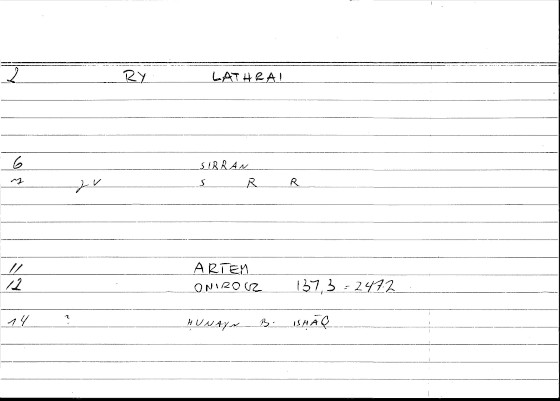 2 RY LATHRAI
6 SIRRAN
7 S R R
11 ARTEM
12 ONIROCR 137,3 = 2472
14 ? ḤUNAYN B. ISḤĀQ